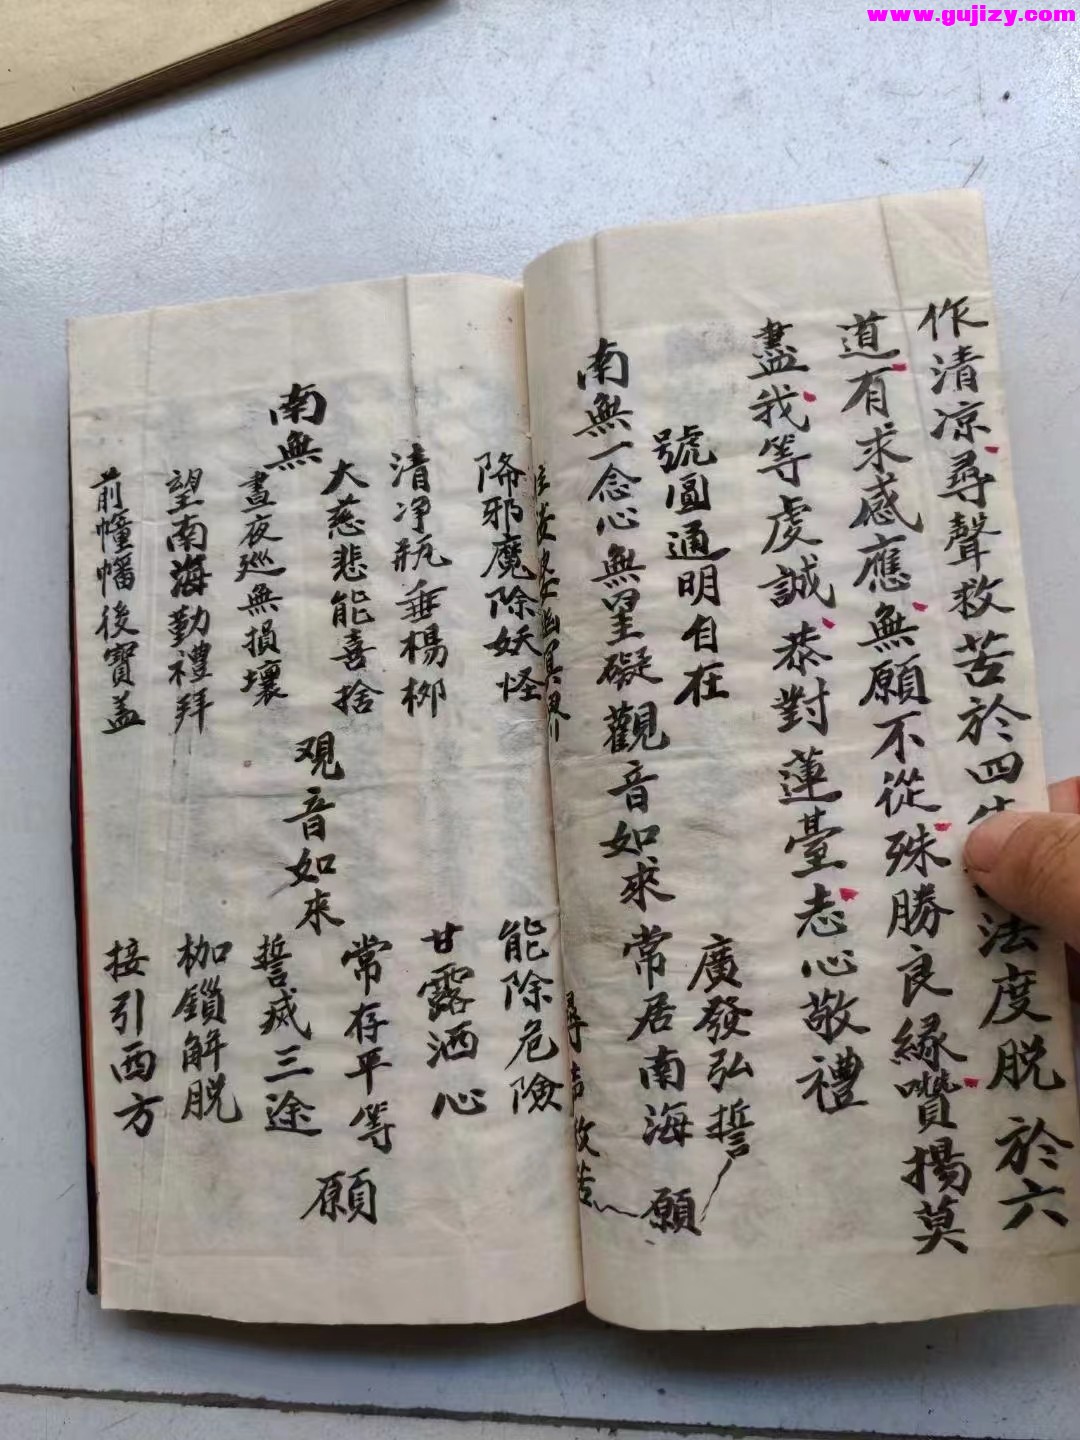 www.gujizy.com
作清凉尋聲救苦於四生法度脱於六
道有求感應無願不從殊勝良緣讚揚莫
盡我等虔誠恭對蓮臺志心敬禮
號圓通明自在 廣發弘誓
南無一念心無罣礙觀音如來常居南海願
尋声救苦
降邪魔除妖怪 能除危險
清净瓶垂楊柳 甘露洒心
大慈悲能喜捨 常存平等
南無 观音如來 願
晝夜巡無損壞 誓滅三途
望南海勤禮拜 枷鎖解脱
前幢幡後寶盖 接引西方